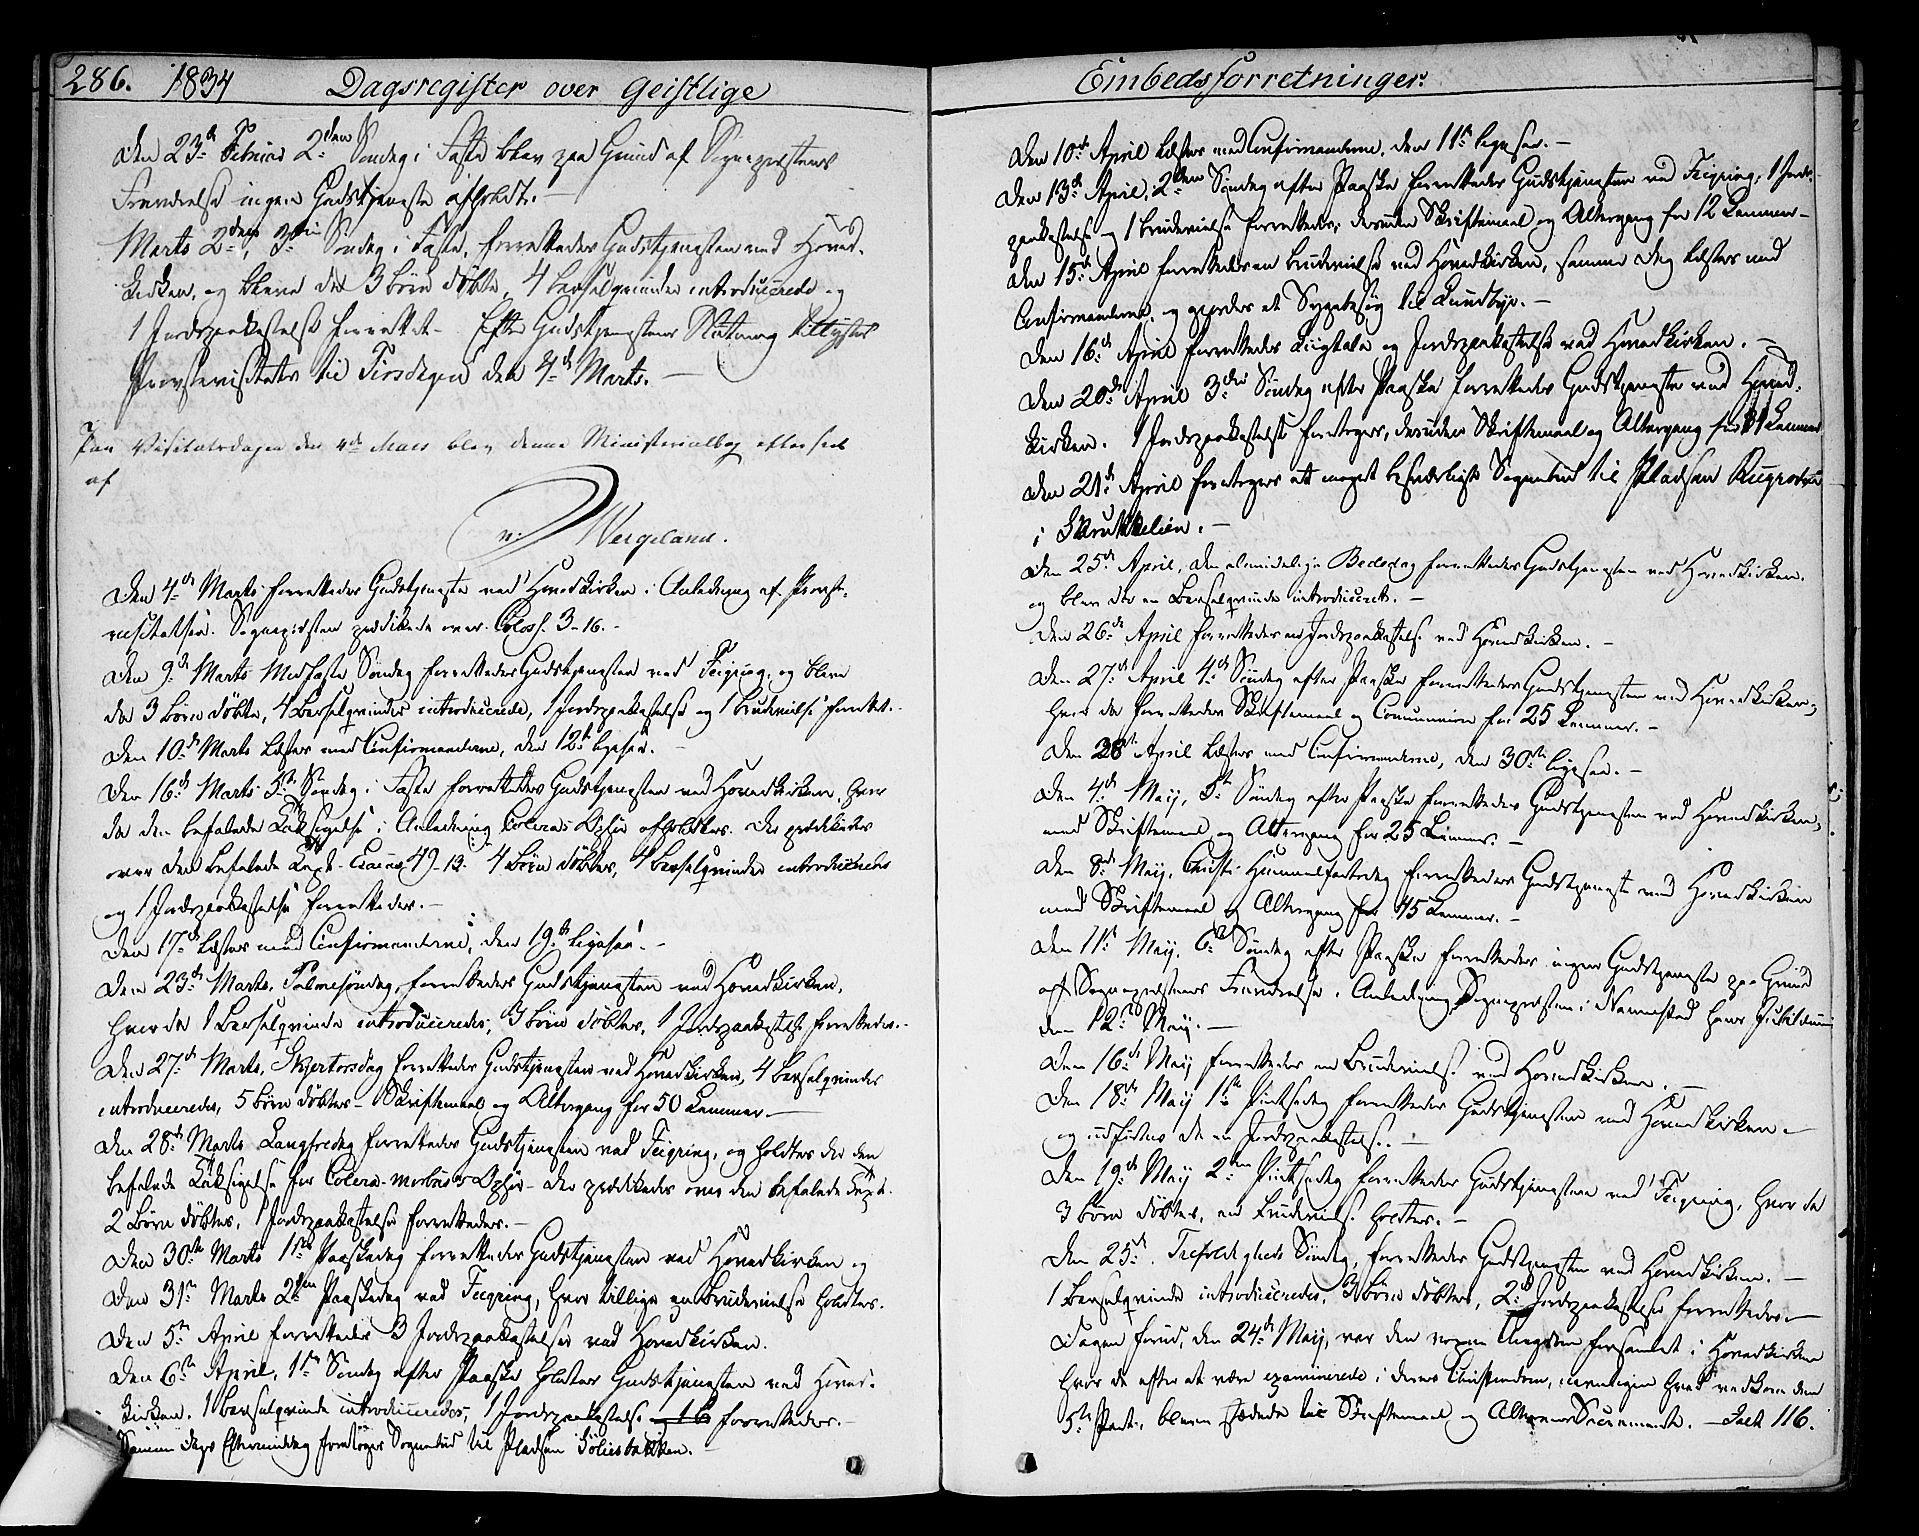 286. 1834 Dagsregister over Geistlige
Den 23d Februar 2den Søndag i Faste blev paa Grund af Sognepræstens
Fraværelse ingen Gudstjeneste afholdt. –
Marts 2den, 3die Søndag i Faste, forrettedes Gudstjenesten ved Hoved-
kirken, og bleve der 3 børn døbte, 4 barselqvinder introducerede og
1 Jordpaakastelse forrettet – Efter Gudstjenestens Slutning tillystes
Provstevisitats til Tirsdagen den 4de Marts. –
Paa Visitatsdagen den 4de Mars blev denne Ministerialbog efterseet
af
N: Wergeland.
Den 4de Marts forrettedes Gudstjeneste ved Hovedkirken i Anledning af Provste-
visitatsen. Sognepræsten prædikede over Coloss. 3-16. –
Den 9de Marts Midfaste Søndag forrettedes Gudstjenesten ved Feiring, og bleve
der 3 børn døbte, 4 Barselqvinder introducerede, 1 Jordpaakastelse og 1 brudevielse forrettet. –
Den 10de Marts læstes med Confirmanderne, den 12te ligesaa. –
Den 16de Marts 5te Søndag i Faste forrettedes Gudstjenesten ved Hovedkirken, hvor
da den befalede Taksigelse i Anledning Coleras Ophør afholdtes. Der prædikedes
over den befalede Text – Esaias 49-13. 4 børn døbtes, 4 barselqvinder introduceredes
og 1 Jordpaakastelse forrettedes. –
Den 17de læstes med Confirmanderne, den 19de ligesaa. –
Den 23de Marts, Palmesøndag, forrettedes Gudstjenesten ved Hovedkirken,
hvor da 1 Barselqvinde introduceredes, 3 børn døbtes, 1 Jordpaakastelse forrettedes. –
Den 27de Marts, Skjertorsdag forrettedes Gudstjenesten ved Hovedkirken, 4 barselqvinder
introduceredes, 5 børn døbtes – Skriftemaal og Altergang for 50 Lemmer. –
Den 28de Marts Langfredag forrettedes Gudstjenesten ved Feiring, og holdtes der den
befalede Taksigelse for Colera-morbus's Ophør – der prædikedes over den befalede Text.
2 Børn døbtes, 1 Jordpaakastelse forrettedes. –
Den 30te Marts 1ste Paaskedag forrettedes Gudstjenesten ved Hovedkirken og
Den 31te Marts 2den Paaskedag ved Feiring, hvor tillige en Brudevielse holdtes.
Den 5te April forrettedes 3 Jordpaakastelser ved Hovedkirken.
Den 6te April, 1ste Søndag efter Paaske holdtes Gudstjenesten ved Hoved-
kirken. 1 barselqvinde introduceredes, 1 Jordpaakastelse forrettedes. –
Samme Dags Eftermiddag foretoges Sognebud til Pladsen Soliebakken. –
Embedsforretninger.
Den 10de April læstes med Confirmanderne, den 11te ligesaa. –
Den 13de April, 2den Søndag efter Paaske forrettedes Gudstjenesten ved Feiring, 1 Jord-
paakastelse og 1 brudevielse forrettedes, desuden Skriftemaal og Altergang for 12 Lemmer –
Den 15de April forrettedes en brudevielse ved Hovedkirken, samme Dag læstes med
Confirmanderne, og gjordes et Sygebesøg til Lundbye. –
Den 16de April forrettedes Liigtale og Jordpaakastelse ved Hovedkirken. –
Den 20de April 3die Søndag efter Paaske forrettedes Gudstjeneste ved Hoved-
kirken. 1 Jordpaakastelse foretoges, desuden Skriftemaal og Altergang for 31 Lemmer
Den 21de April foretoges et meget besværligt Sognebud til Pladsen Rugrodnin
i Skrukkelien. –
Den 25de April, den almindelige Bededag forrettedes Gudstjenesten ved Hovedkirken,
og blev der en Barselqvinde introduceret. –
Den 26de April forrettedes en Jordpaakastelse ved Hovedkirken. –
Den 27de April 4de Søndag efter Paaske forrettedes Gudstjenesten ved Hovedkirken,
hvor der forrettedes Skriftemaal og Communion for 25 Lemmer. –
Den 28de April læstes med Confirmanderne, den 30te ligesaa. –
Den 4de Maij, 5te Søndag efter Paaske forrettedes Gudstjenesten ved Hovedkirken,
med Skriftemaal og Altergang for 25 Lemmer. –
Den 8de Maij, Christi Himmelfartsdag forrettedes Gudstjeneste ved Hovedkirken
med Skriftemaal og Altergang for 45 Lemmer. –
Den 11te Maij, 6te Søndag efter Paaske forrettedes ingen Gudstjeneste paa Grund
af Sognepræstens Fraværelse i Anledning Sognepræsten i Nannestad hans Jubilæum
den 12te Maij. –
Den 16de Maij forrettedes en Brudevielse ved Hovedkirken. –
Den 18de Maij 1ste Pintsedag forrettedes Gudstjenesten ved Hovedkirken –
og udførtes der en Jordpaakastelse. –
Den 19de Maij 2den Pintsedag forrettedes Gudstjenesten ved Feiring, hvor da
3 børn døbtes, en Brudevielse holdtes. –
Den 25de. Trefoldigheds Søndag, forrettedes Gudstjenesten ved Hovedkirken. –
1 Barselqvinde introduceredes, 3 Børn døbtes, 2de Jordpaakastelser forrettedes –
Dagen forud, den 24de Maij, var den unge Ungdom forsamlet i Hovedkirken
hvor de efter at være examinerede i deres Christendom, navnligen hvad vedkom den
5te Part, bleve stædede til Skriftemaal og Alterens Sacramente. – Ialt 116.